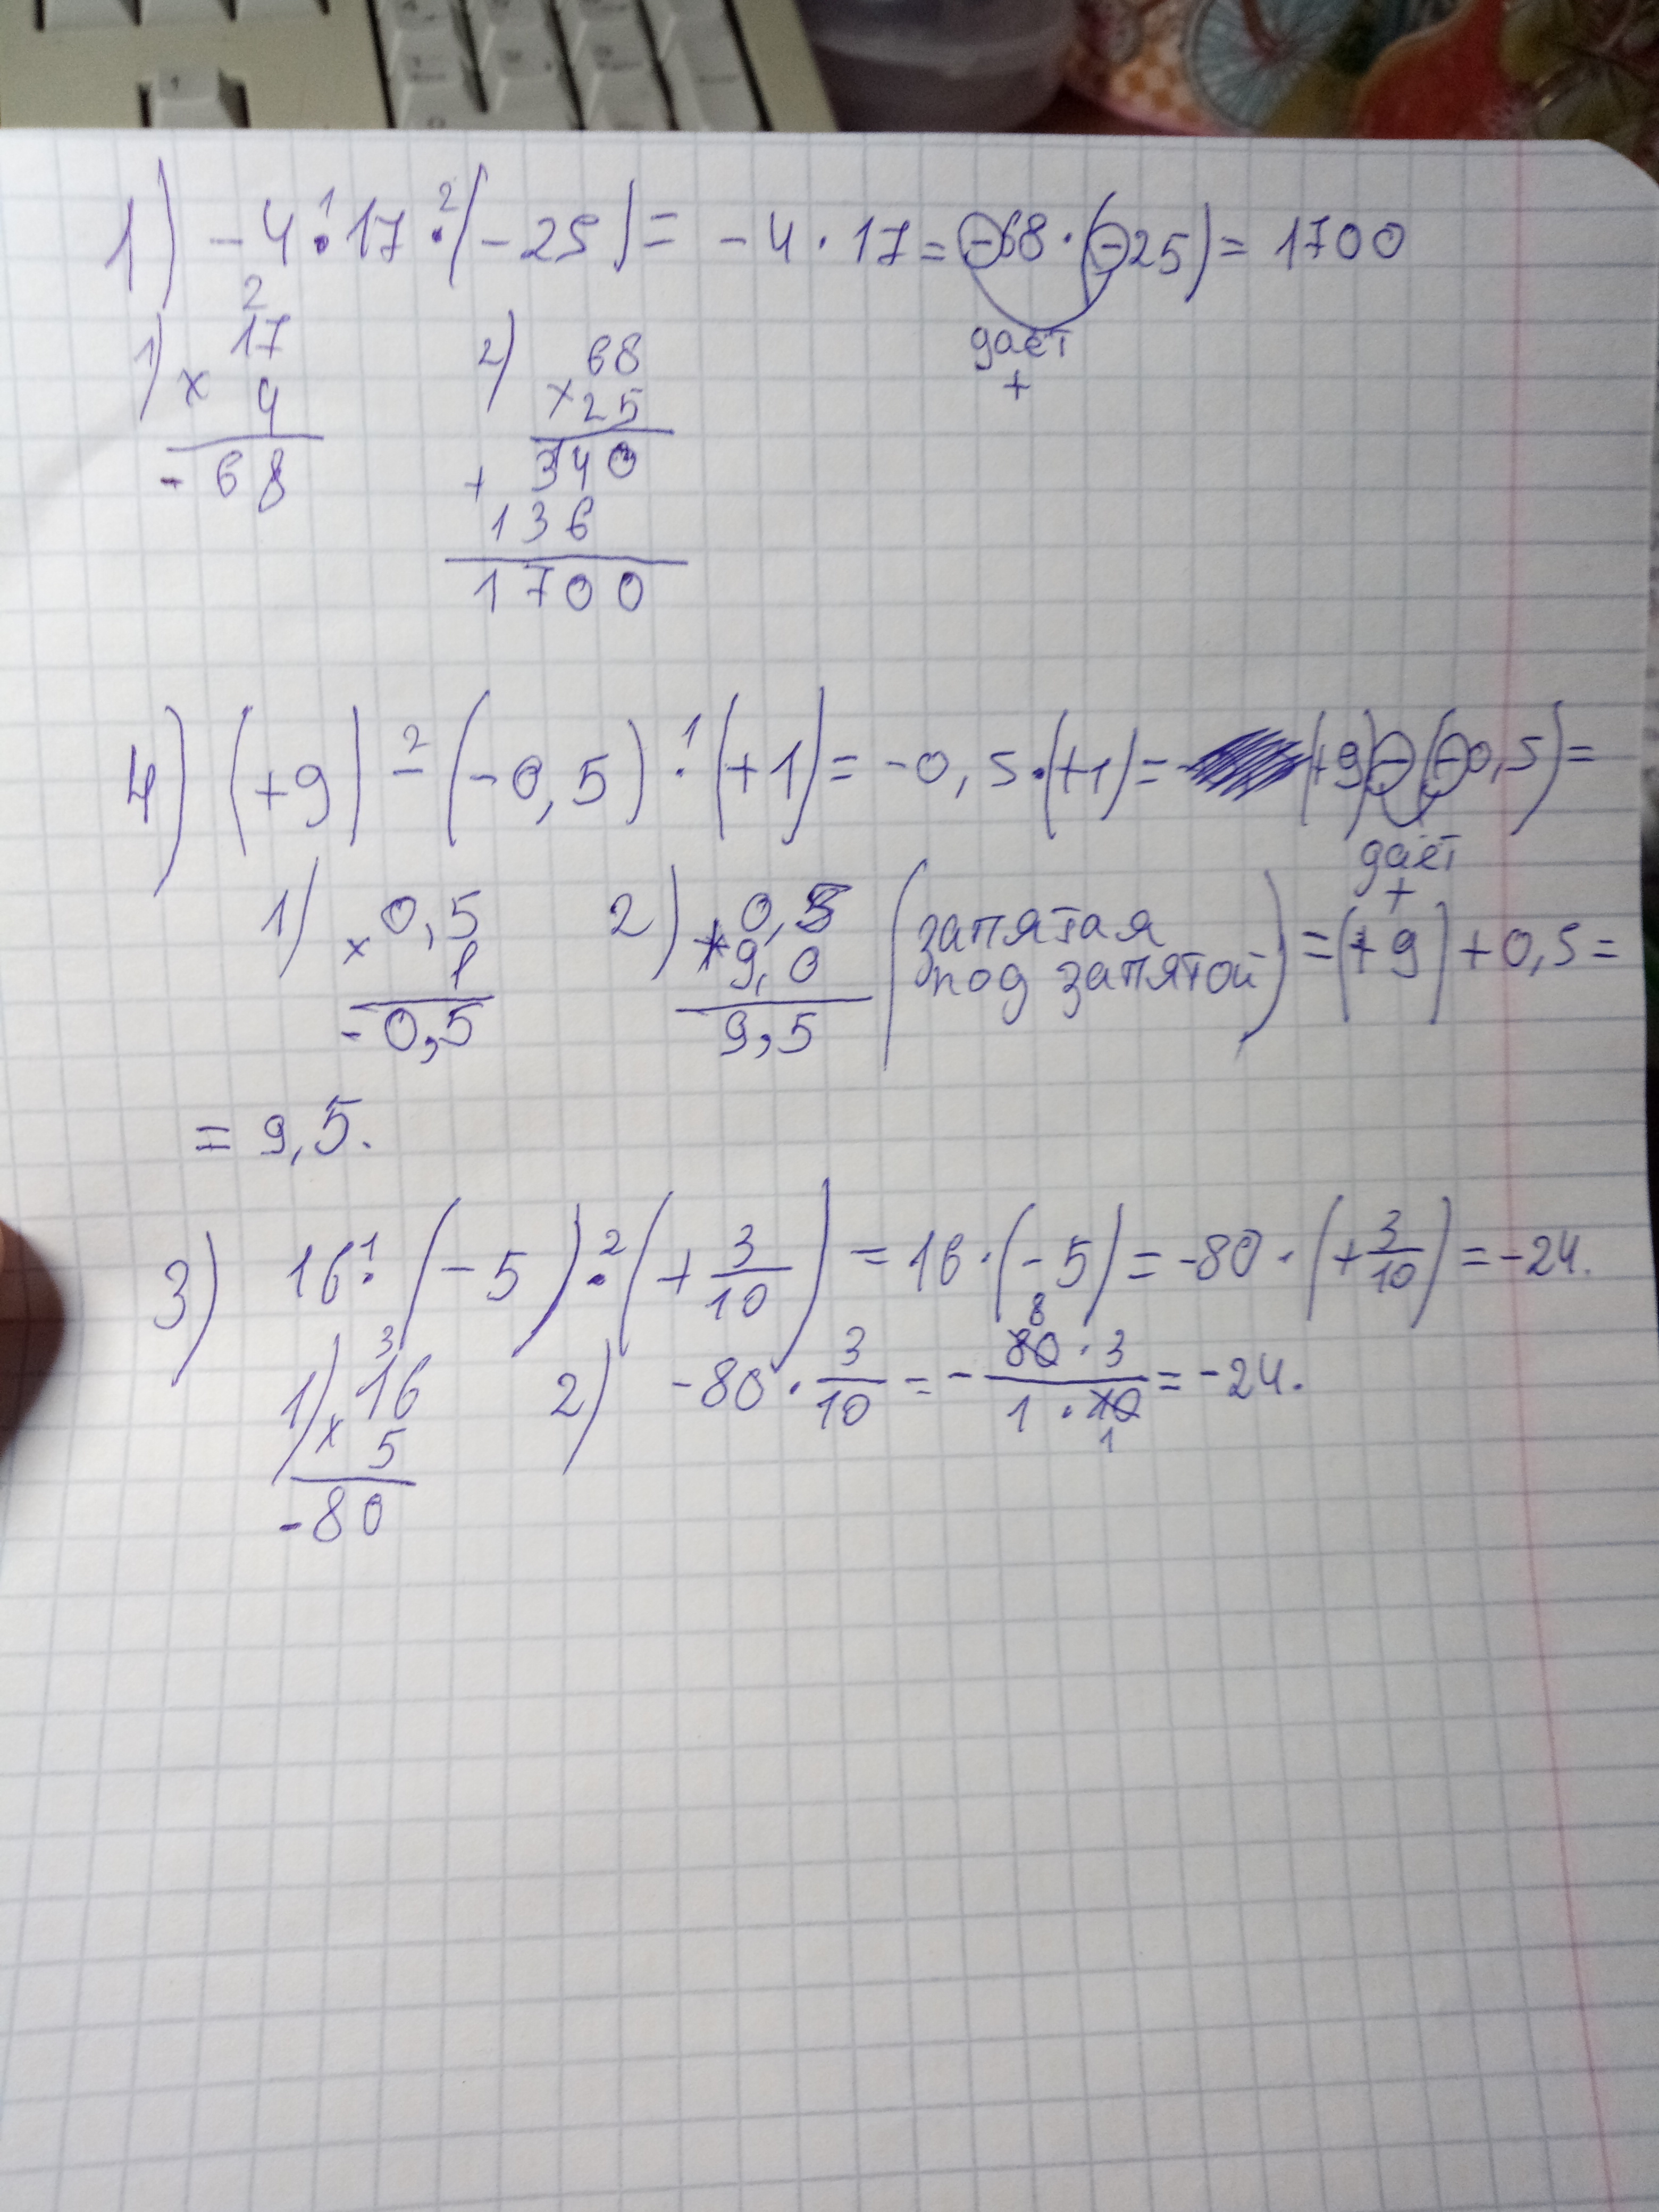 1) -4 · 17 · (-25) = -4 · 17 = -68 · (-25) = 1700
1 2
даёт
+
1) 2
17
× 4
-68
2) 68
× 25
340
+
136
1700
4) (+9) - (-0,5) · (+1) = -0,5 · (+1) = (+9) - (-0,5) =
2 1
даёт
+
1) 0,5
× 1
-0,5
2) 0,5
+ 9,0
9,5
(запятая
под запятой)
= (+9) + 0,5 =
= 9,5.
3) 16 · (-5) · (+3/10) = 16 · (-5) = -80 · (+3/10) = -24.
1 2
1) 3
16
× 5
-80
2) -80 · 3/10 = - 80 · 3 / 1 · 10 = -24.
8
1